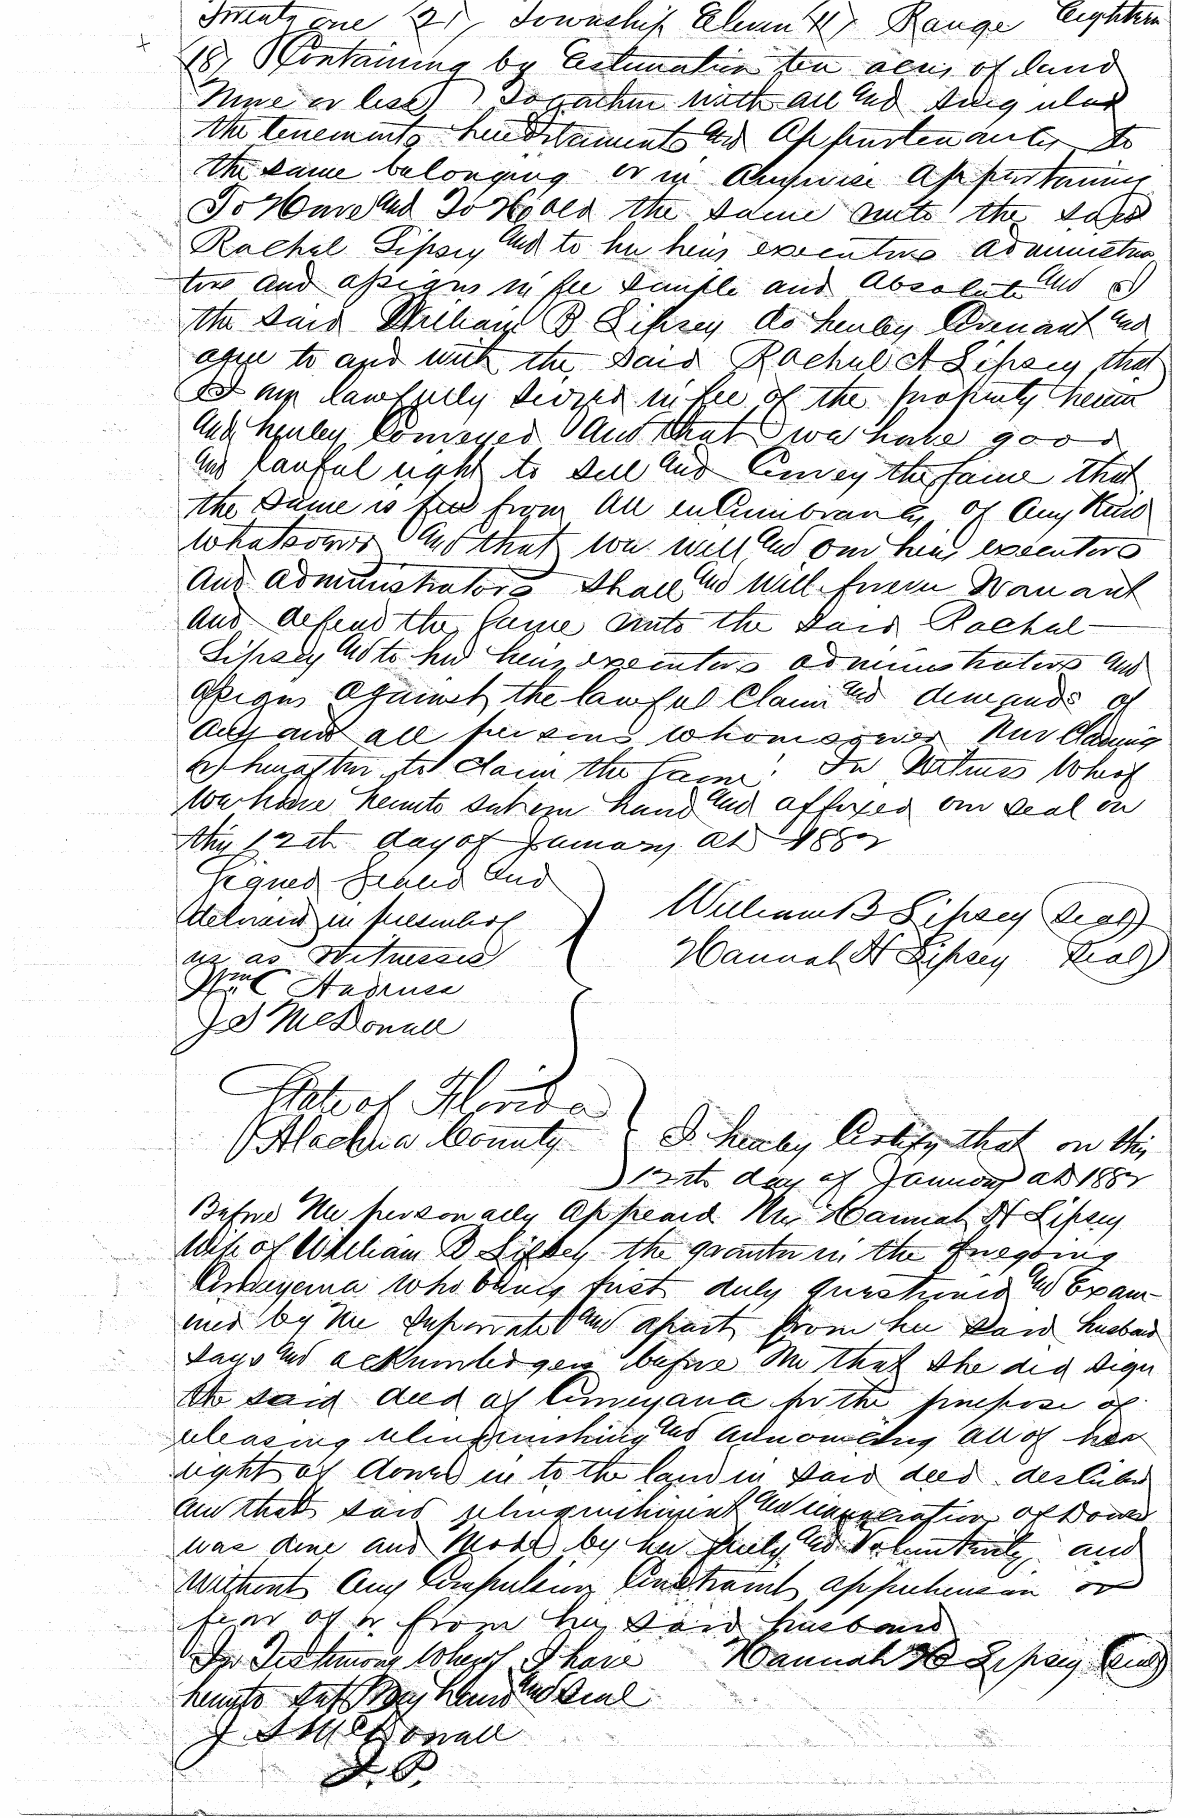 Twenty one (21) Township Eleven (11) Range Eighteen
(18) Containing by Estimation ten acres of land
More or less Togather with all and singular
the tenements hereditaments and Appurtenances to
the same belonging or in anywise appertaining
To Have and To Hold the same unto the said
Rachel Lipsey and to her heirs executors administra
tors and assigns in fee simple and Absolute and I
the said William B Lipsey do hereby Covenant and
agree to and with the said Rachel A Lipsey that
I am lawfully seized in fee of the property herein
and hereby Conveyed And that we have good
and lawful right to sell and Convey the same that
the same is free from all encumbrances of any Kind
whatsoever And that we will and our heirs executors
and administrators shall and will forever Warrant
and defend the same unto the said Rachel
Lipsey and to her heirs executors administrators and
assigns against the lawful claim and demands of
any and all persons whomsoever Now Claiming
or hereafter to claim the same. In Witness Wherof
we have hereunto set our hand and affixed our seal on
this 12th day of January AD 1882
Signed Sealed and
delivered in presence of
us as Witnesses
William B Lipsey (seal)
Hannah H Lipsey (seal)
Wm C Andruss
J S McDonall
State of Florida
Alachua County
I hereby Certify that on this
12th day of January AD 1882
Before Me personally appeard Mrs Hannah H Lipsey
Wife of William B Lipsey the grantor in the foregoing
Conveyance who being first duly questioned and Exam-
ined by me seperate and apart from her said husband
says and acknowledges before Me that she did sign
the said deed of Conveyance for the purpose of
releasing relinquishing and renouncing all of her
right of dower in to the land in said deed described
and that said relinquishment and renunciation of Dower
was done and Made by her freely and Voluntarily and
without any Compulsion Constraint apprehension or
fear of or from her said husband
In Testimony Wherof I have Hannah H Lipsey (seal)
hereunto set My hand and seal
J S McDonall
J. P.